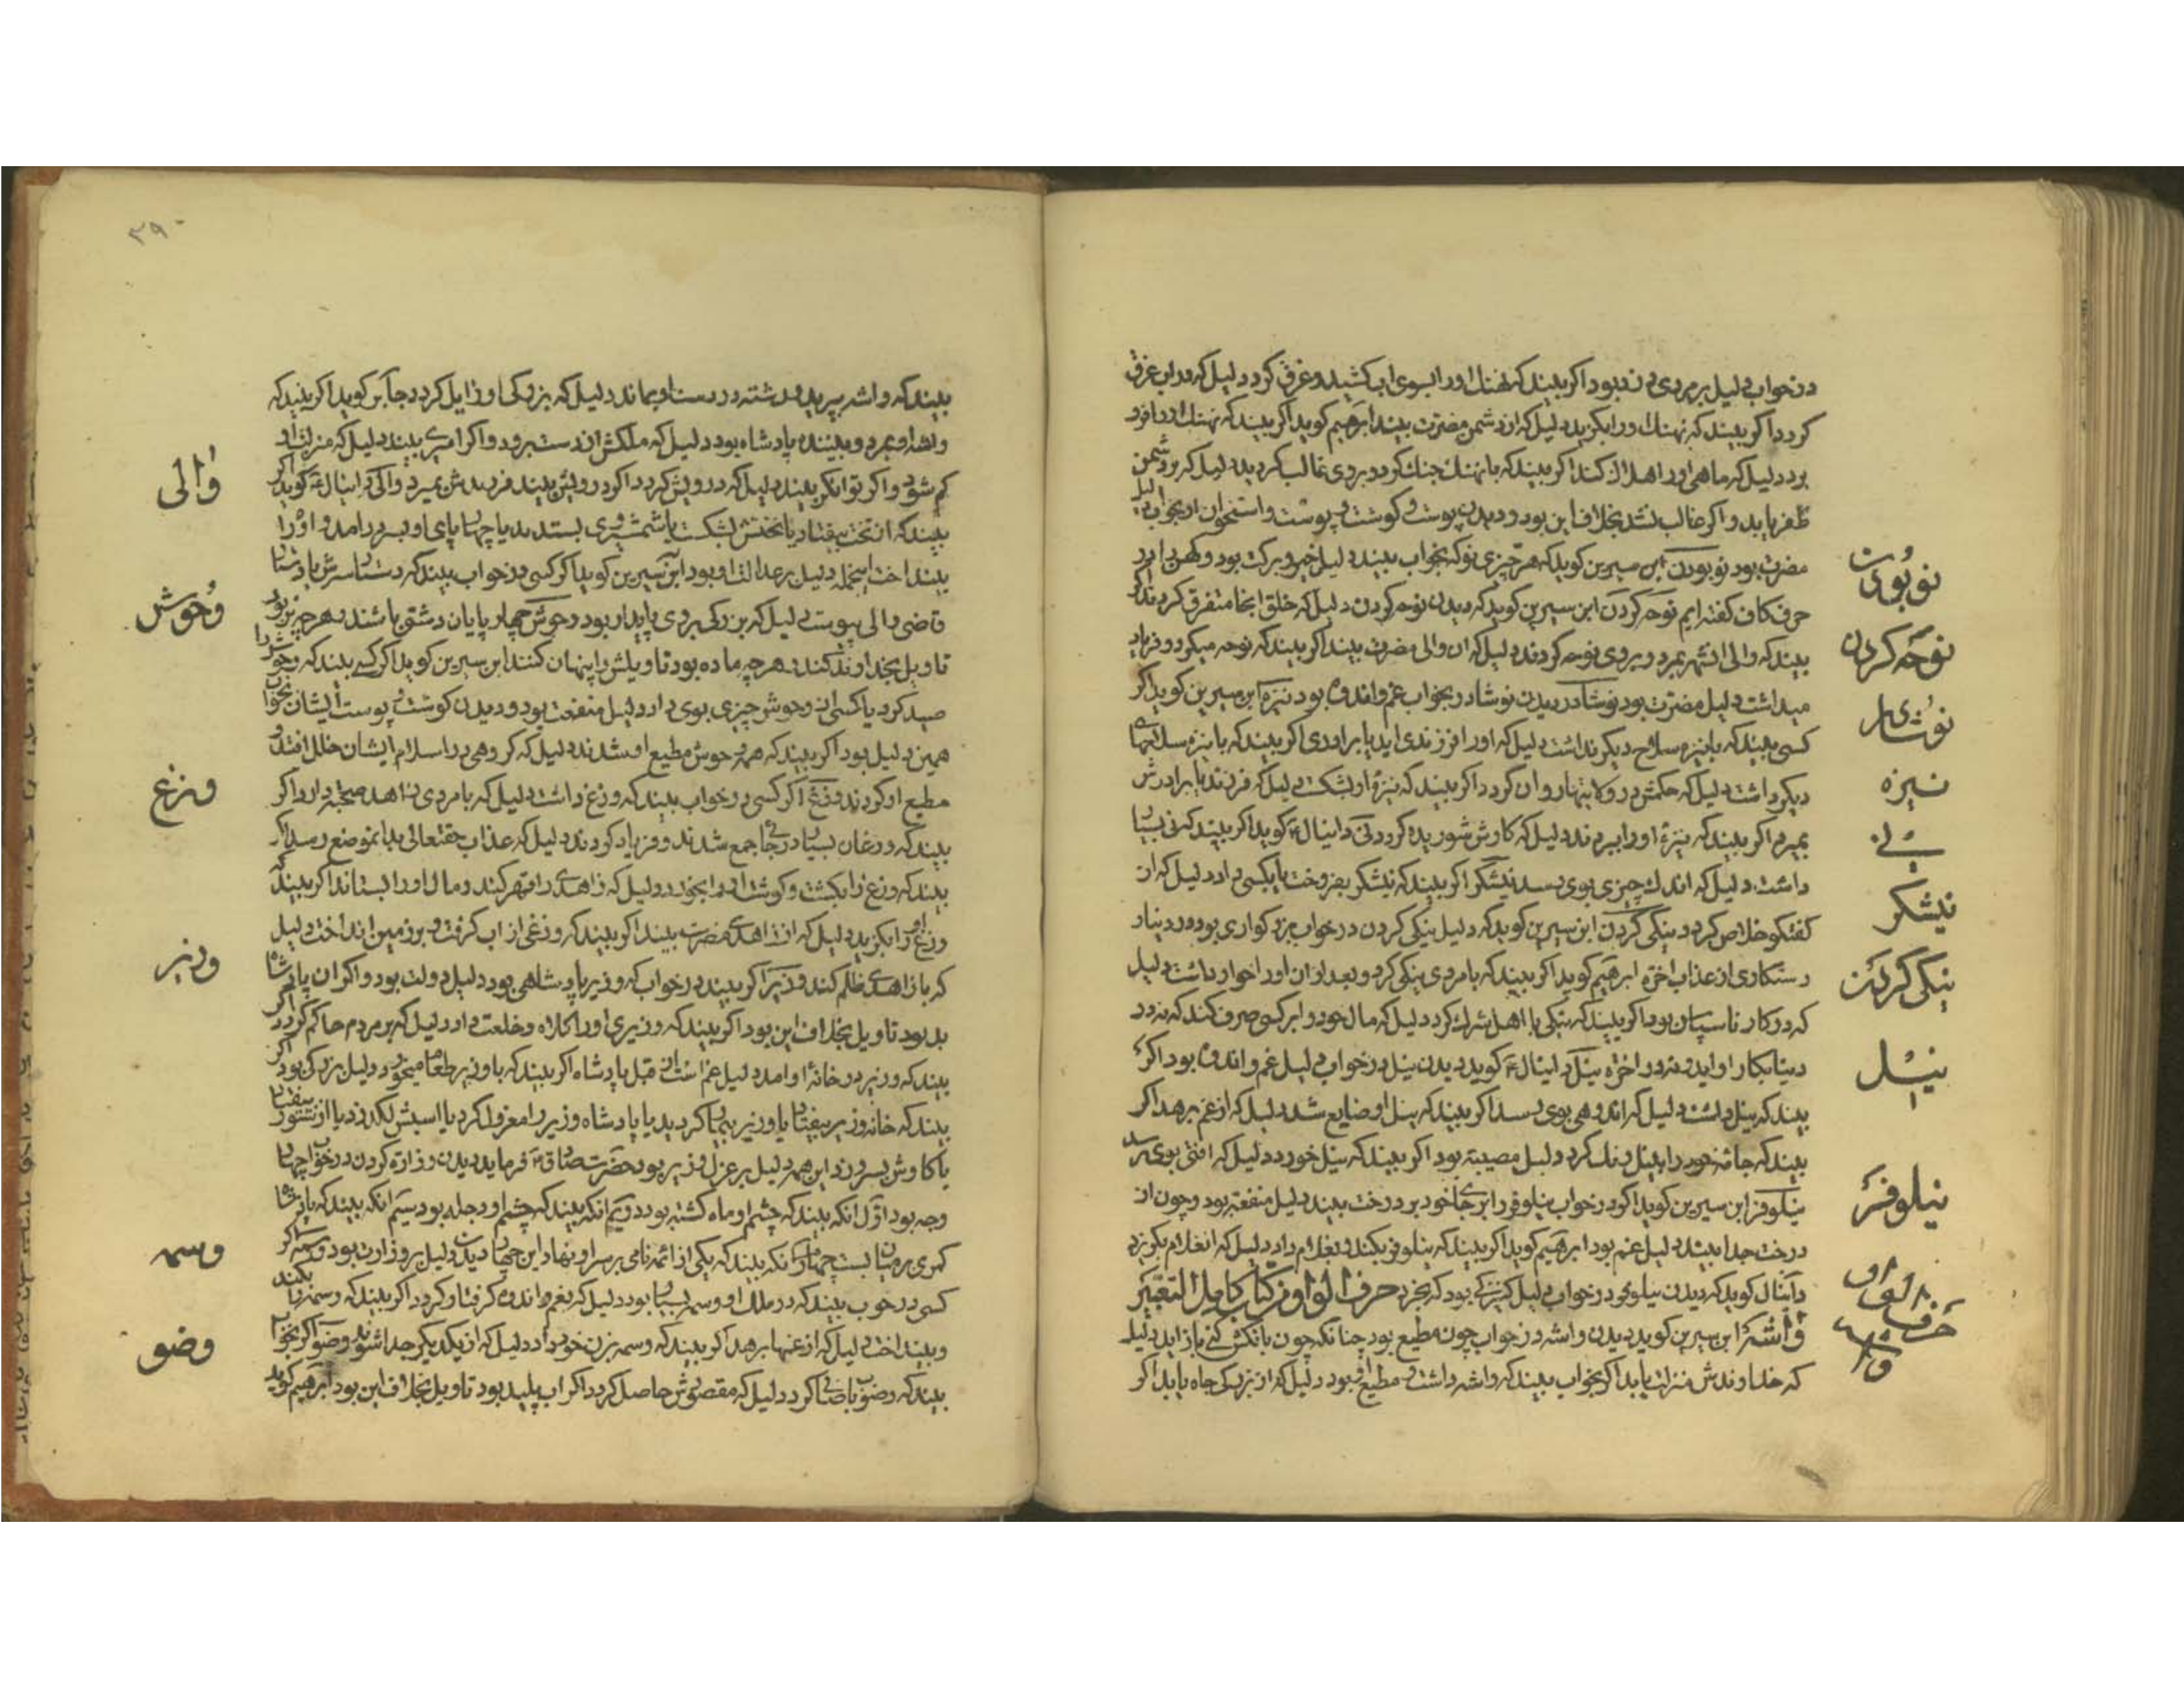 در خواب دلیل بر مردی دزد بود اگر بیند که نهنک اورا بسوی آب کشید و غرق کرد دلیل که در آب غرق
کردد اکر بیند که نهنك اورا بکزید دلیل که از دشمن مضرت بیند ابرهیم کوید اکر بیند که نهنك اورا فرو
برد دلیل که ماهی اورا هلاك کند اکر بیند که با نهنك جنك کرد و بر وی غالب کردید دلیل که بر دشمن
ظفر یابد و اکر غالب نشد بخلاف این بود و دیدن پوست و کوشت و پوست و استخوان او بخواب دلیل
مضرت بود نو بودن ابن سیرین کوید که هر چیزی نو که بخواب بیند دلیل خیر و برکت بود و کهن را در
حرف کاف کفته ایم نوحه کردن ابن سیرین کوید که دیدن نوحه کردن دلیل که خلق آنجا متفرق کردند اکر
بیند که والی آن شهر بمرد و بر وی نوحه کردند دلیل که از آن والی مضرت بیند اکر بیند که نوحه میکرد و فریاد
میداشت دلیل مضرت بود نوشادر دیدن نوشادر بخواب غم و اندوه بود نیزه ابن سیرین کوید اکر
کسی بیند که با نیزه سلاح دیکر نداشت دلیل که اورا فرزندی آید یا برادری اکر بیند که با نیزه سلاحهای
دیکر داشت دلیل که حکمش در ولایتها روان کردد اکر بیند که نیزه او بشکست دلیل که فرزند یا برادرش
بمیرد اکر بیند که نیزه اورا ببردند دلیل که کارش شوریده کردد نی دانیال ع کوید اکر بیند که نی بسیار
داشت دلیل که اندك چیزی بوی رسد نیشکر اکر بیند که نیشکر بفروخت یا بکسی داد دلیل که از
کفتکو خلاص کردد نیکی کردن ابن سیرین کوید که دلیل نیکی کردن در خواب بزرکواری بود در دینار
رستکاری از عذاب آخرة ابرهیم کوید اکر بیند که با مردی نیکی کرد و بعد از آن اورا خوار داشت دلیل
که در کار ناسپاس بود اکر بیند که نیکی با اهل شرك کرد دلیل که مال خود را بر کسی صرف کند که نه در
دینا بکار او آید و نه در آخرة نیل دانیال ع کوید دیدن نیل در خواب دلیل غم و اندوه بود اکر
بیند که نیل داشت دلیل که اندوهی بوی رسد اکر بیند که نیل او ضایع شد دلیل که از غم برهد اکر
بیند که جامه خود را بنیل رنك کرد دلیل مصیبة بود اکر بیند که نیل خورد دلیل که آفتی بوی رسد
نیلوفر ابن سیرین کوید اکر در خواب نیلوفر را بر جای خود بر درخت بیند دلیل منفعة بود و چون از
درخت جدا بیند دلیل غم بود ابرهیم کوید اکر بیند که نیلوفر بکند و بغلام داد دلیل که آن غلام بکریزد
دانیال کوید که دیدن نیلوفر در خواب دلیل کنیزکی بود که بخرد حرف الواو من کتاب کامل التعبیر
واشه ابن سیرین کوید دیدن واشه در خواب چون مطیع بود چنانکه چون بانکش کنی باز آید دلیل
که خداوندش منزلت یابد اکر بخواب بیند که واشه داشت و مطیع او نبود دلیل که از بزرکی جاه یابد اکر
نو بودن
نوحه کردن
نوشادر
نیزه
نی
نیشکر
نیکی کردن
نیل
نیلوفر
حرف الواو
واشه
۳۹۰
بیند که واشه بپرید و رشته در دست او بماند دلیل که بزرکی او زایل کردد جابر کوید اکر بیند که
واشه او بمرد و بیننده پادشاه بود دلیل که ملکش از دست برود و اکر امیری بیند دلیل که منزلت او
کم شود و اکر توانکر بیند دلیل که درویش کردد اکر درویش بیند فرزندش بمیرد والی دانیال ع کوید اکر
بیند که از تخت بیفتاد یا تختش بشکست یا شمشیر وی بستدند یا چهارپای او بسر درآمد و اورا
بینداخت این جمله دلیل بر عدالت او بود ابن سیرین کوید اکر کسی در خواب بیند که دستار سرش با دستار
قاضی والی پیوست دلیل که بزرکی بر وی پایدار بود وحوش چهارپایان دشتی باشند هر چه نر بود
تاویل بخداوند کنند و هر چه ماده بود تاویلش را پنهان کنند ابن سیرین کوید اکر کسی بیند که وحوش را
صید کرد یا کسی از وحوش چیزی بوی داد دلیل منفعت بود و دیدن کوشت و پوست ایشان بخواب
همین دلیل بود اکر بیند که همه وحوش مطیع او شدند دلیل که کروهی در اسلام ایشان خلل افتد و
مطیع او کردند وزغ اکر کسی در خواب بیند که وزغ داشت دلیل که با مردی زاهد صحبة دارد اکر
بیند که وزغان بسیار در جای جمع شدند و فریاد کردند دلیل که عذاب حقتعالی بدان موضع رسد اکر
بیند که وزغ را بکشت و کوشت او را بخورد دلیل که زاهدی را قهر کند و مال اورا بستاند اکر بیند که
وزغ اورا بکزید دلیل که از زاهدی مضرت بیند اکر بیند که وزغی از آب کرفت و بر زمین انداخت دلیل
که با زاهدی ظلم کند وزیر اکر بیند در خواب که وزیر پادشاهی بود دلیل دولت بود و اکر آن پادشاه
بد بود تاویل بخلاف این بود اکر بیند که وزیری اورا کلاه و خلعت داد دلیل که بر مردم حاکم کردد اکر
بیند که وزیر در خانه او آمد دلیل غم است از قبل پادشاه اکر بیند که با وزیر طعام میخورد دلیل بزرکی بود اکر
بیند که خانه وزیر بیفتاد یا وزیر بیمار کردید یا پادشاه وزیر را معزول کرد یا اسبش لکد زد یا از ستور بیفتاد
یا کاوش بسر زد این همه دلیل بر عزل وزیر بود حضرت صادق ع فرماید دیدن وزارة کردن در خواب چهار
وجه بود اول آنکه بیند که چشم او ماه کشته بود دویم آنکه بیند که چشم او دجله بود سیم آنکه بیند که پادشاه
کمری بر میان بست چهارم آنکه بیند که یکی از ائمه تاجی بر سر او نهاد این چهار دیدن دلیل بر وزارت بود وسمه اکر
کسی در خواب بیند که در ملك او وسمه بسیار بود دلیل که بغم و اندوه کرفتار کردد اکر بیند که وسمه را بکند
و بینداخت دلیل که از غمها برهد اکر بیند که وسمه بزن خود داد دلیل که از یکدیکر جدا شوند وضو اکر بخواب
بیند که وضو باب صافی کرد دلیل که مقصودش حاصل کردد اکر آب پلید بود تاویل بخلاف این بود ابرهیم کوید
والی
وحوش
وزغ
وزیر
وسمه
وضو